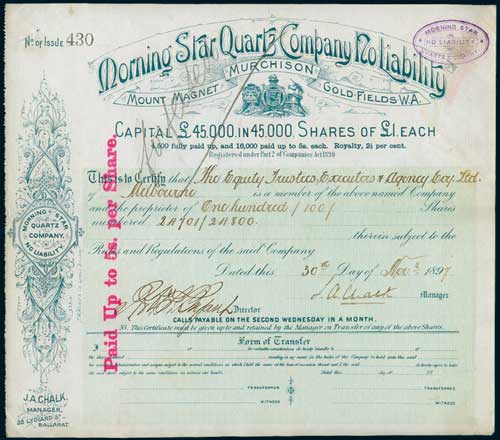 No. of Issue 430
Morning Star Quartz Company No Liability
MURCHISON
MOUNT MAGNET GOLD-FIELDS W.A.
MORNING STAR
NO LIABILITY
QUARTZ COMPANY
CAPITAL £45,000, IN 45,000 SHARES OF £1. EACH
4,500 fully paid up, and 16,000 paid up to 5s. each. Royalty, 2½ per cent.
Registered under Part 2 of Companies Act 1890
This is to Certify that The Equity Trustees Executors & Agency Coy. Ltd.
of Melbourne is a member of the above named Company
and the proprietor of One hundred /100/ Shares
numbered 24701/24800
therein subject to the
Rules and Regulations of the said Company
Dated this 30th Day of Novr. 1897
Manager
Director
CALLS PAYABLE ON THE SECOND WEDNESDAY IN A MONTH.
This Certificate must be given up to and retained by the Manager on Transfer of any of the above Shares.
Form of Transfer
TRANSFEROR
WITNESS
TRANSFEREE
WITNESS
Paid Up to 5s. per Share.
MORNING STAR
QUARTZ
COMPANY.
NO LIABILITY
J.A. CHALK,
MANAGER,
25 LYDIARD ST
BALLARAT.